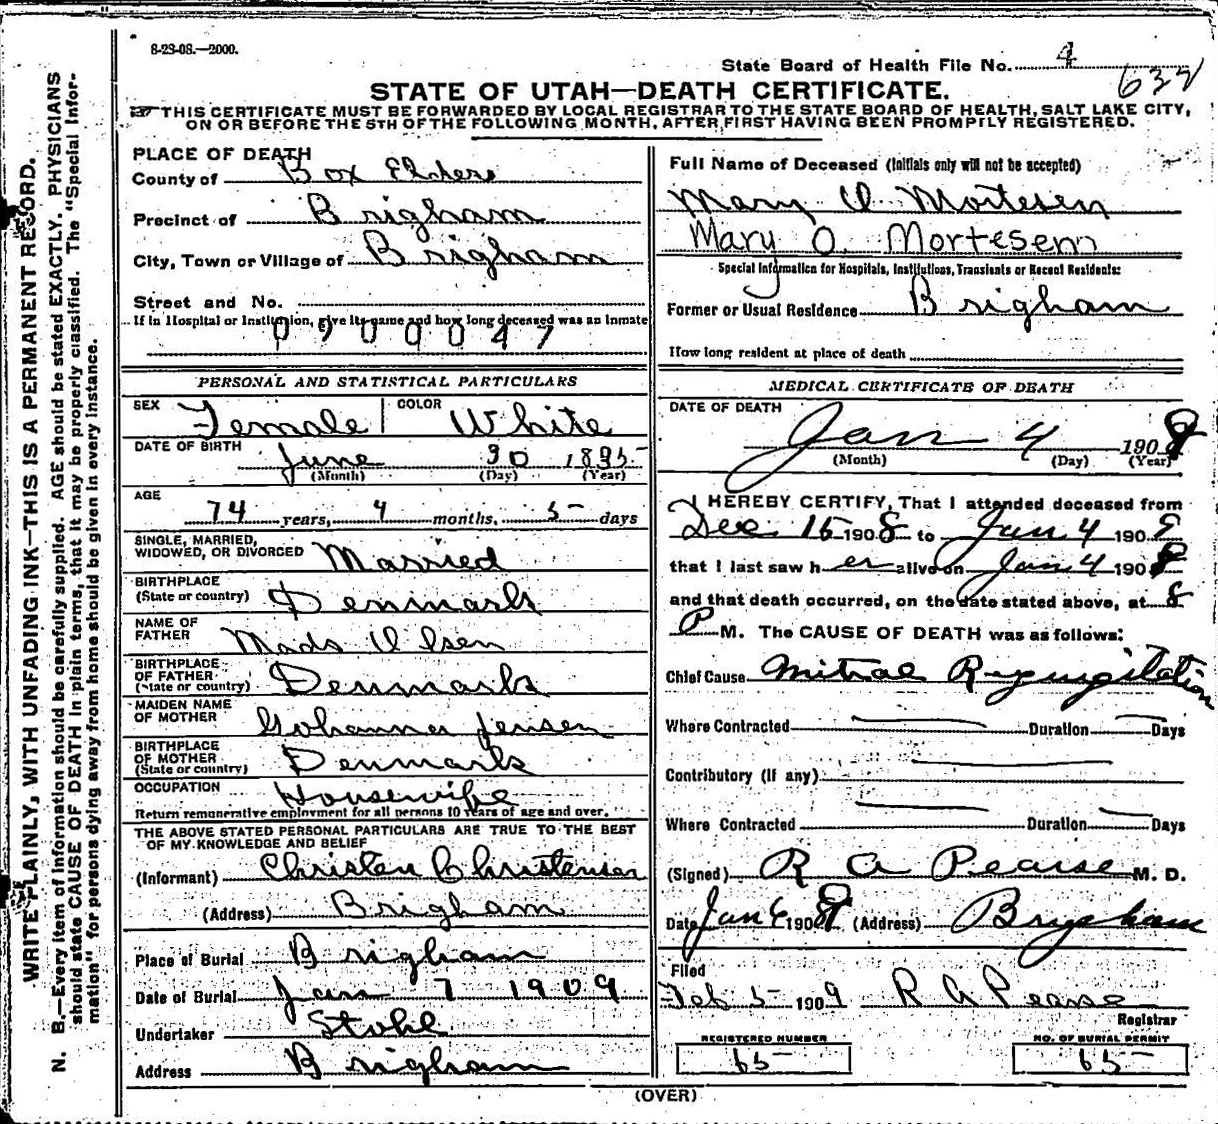 8-23-08.—2000.
State Board of Health File No. 4
637
STATE OF UTAH—DEATH CERTIFICATE.
THIS CERTIFICATE MUST BE FORWARDED BY LOCAL REGISTRAR TO THE STATE BOARD OF HEALTH, SALT LAKE CITY,
ON OR BEFORE THE 5TH OF THE FOLLOWING MONTH, AFTER FIRST HAVING BEEN PROMPTLY REGISTERED.
WRITE PLAINLY, WITH UNFADING INK—THIS IS A PERMANENT RECORD.
N. B.—Every item of information should be carefully supplied. AGE should be stated EXACTLY. PHYSICIANS
should state CAUSE OF DEATH in plain terms, that it may be properly classified. The "Special Infor-
mation" for persons dying away from home should be given in every instance.
PLACE OF DEATH
County of Box Elder
Precinct of Brigham
City, Town or Village of Brigham
Street and No.
If in Hospital or Institution, give its name and how long deceased was an inmate
0900047
PERSONAL AND STATISTICAL PARTICULARS
SEX Female COLOR White
DATE OF BIRTH June 30 1835
(Month) (Day) (Year)
AGE
74 years, 4 months, 5 days
SINGLE, MARRIED,
WIDOWED, OR DIVORCED Married
BIRTHPLACE
(State or country) Denmark
NAME OF
FATHER Mads Olsen
BIRTHPLACE
OF FATHER
(State or country) Denmark
MAIDEN NAME
OF MOTHER Johanna Jensen
BIRTHPLACE
OF MOTHER
(State or country) Denmark
OCCUPATION Housewife
Return remunerative employment for all persons 10 years of age and over.
THE ABOVE STATED PERSONAL PARTICULARS ARE TRUE TO THE BEST
OF MY KNOWLEDGE AND BELIEF
(Informant) Christen Christensen
(Address) Brigham
Place of Burial Brigham
Date of Burial Jan 7 1909
Undertaker Stohl
Address Brigham
Full Name of Deceased (Initials only will not be accepted)
Mary O Mortesen
Mary O. Mortesen
Special Information for Hospitals, Institutions, Transients or Recent Residents:
Former or Usual Residence Brigham
How long resident at place of death
MEDICAL CERTIFICATE OF DEATH
DATE OF DEATH
Jan 4 1909
(Month) (Day) (Year)
I HEREBY CERTIFY, That I attended deceased from
Dec 15 1908 to Jan 4 1909
that I last saw her alive on Jan 4 1909
and that death occurred, on the date stated above, at 8
P M. The CAUSE OF DEATH was as follows:
Chief Cause Mitral Regurgitation
Where Contracted Duration Days
Contributory (If any)
Where Contracted Duration Days
(Signed) R A Pearse M. D.
Date Jan 6 1909 (Address) Brigham
Filed
Feb 5 1909 R A Pearse
Registrar
REGISTERED NUMBER NO. OF BURIAL PERMIT
65 65
(OVER)